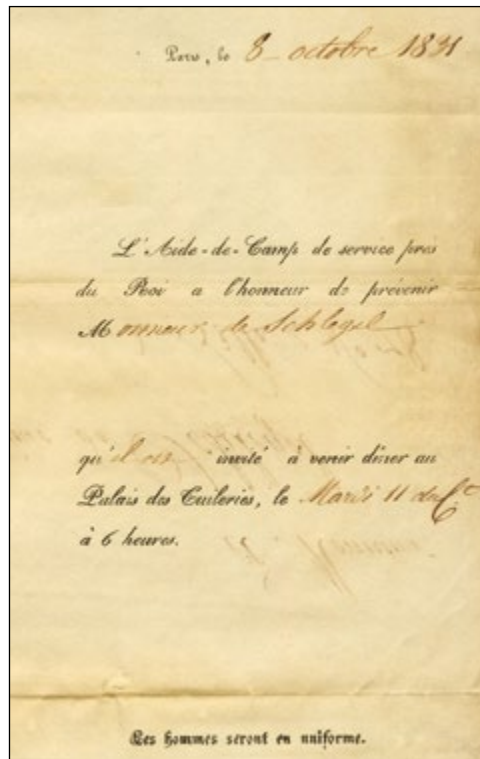 Paris, le 8 octobre 1831
L'Aide-de-Camp de service près
du Roi a l'honneur de prévenir
Monsieur de Schlegel
qu'il est invité à venir dîner au
Palais des Tuileries, le Mardi 11 du Ct
à 6 heures.
Les hommes seront en uniforme.